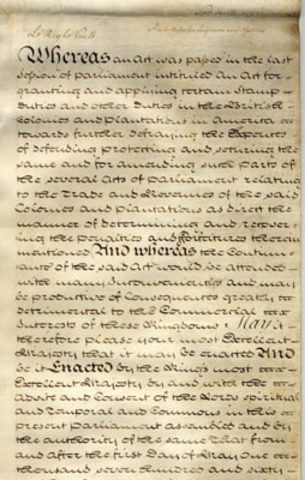 Le Roy le Veult
Whereas an Act was passed in the last
Session of parliament intituled An Act for
granting and applying certain Stamp
Duties and other Duties in the British
Colonies and Plantations in America
towards further defraying the Expences
of defending protecting and securing the
same and for amending such parts of
the several Acts of Parliament relating
to the Trade and Revenues of the said
Colonies and plantations as direct the
manner of determining and recover
ing the penalties and forfeitures therein
mentioned And whereas the Continu
ance of the said Act would be attended
with many Inconveniencies and may
be productive of Consequences greatly
detrimental to the Commercial
Interests of these Kingdoms May it
therefore please your most Excellent
Majesty that it may be enacted And
be it Enacted by the Kings most
Excellent Majesty by and with the
Advice and Consent of the Lords Spiritual
and Temporal and Commons in this
present Parliament assembled and by
the authority of the same That from
and after the first Day of May One
thousand seven hundred and sixty